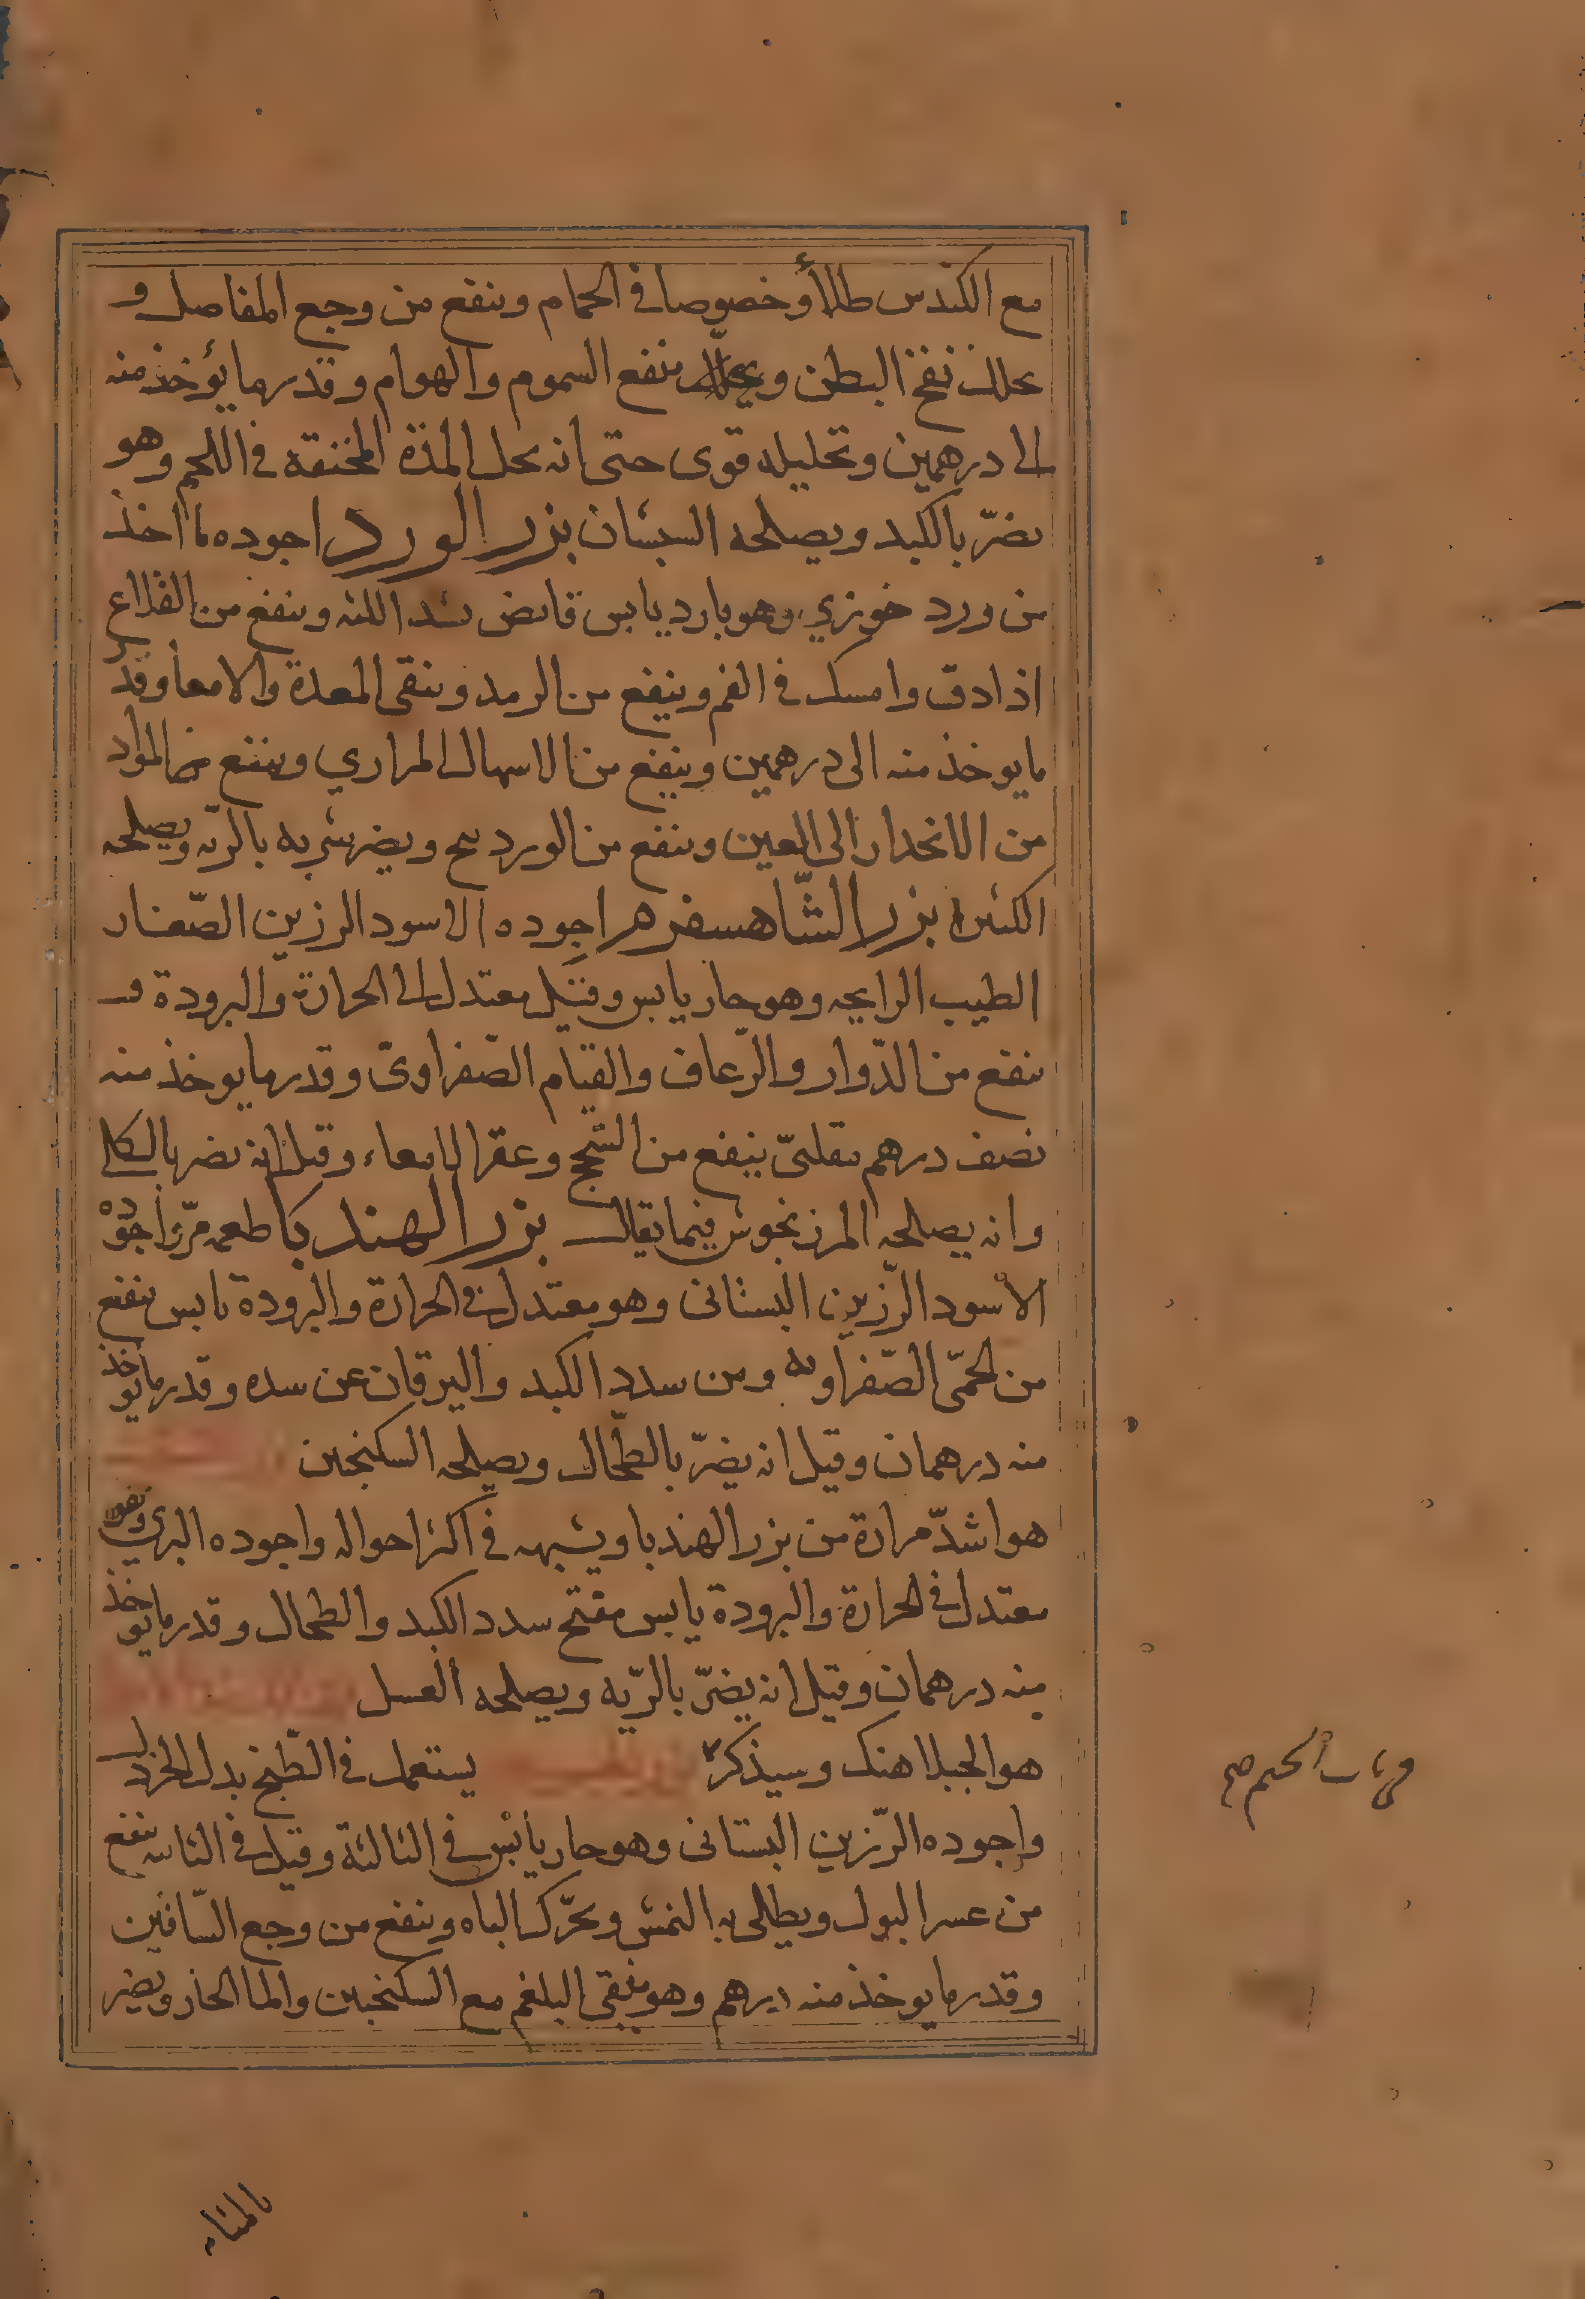 مع الكندس طلاأ وخصوصا فى الحمام وينفع من وجع المفاصل و
يحلل نفخ البطن و ينفع السموم والهوام وقدر ما يؤخذ منه
الى درهمين وتحليله قوى حتى انه يحل المدة المختنقة فى اللحم وهو
يضرّ بالكبد ويصلحه السبستان بزر الورد اجوده ما اخذ
من ورد خوزي وهو بارد يابس قابض يشد اللثه وينفع من القلاع
اذا دق وامسك فى الفم وينفع من الرمد وينقى المعدة والامعا وقدر
ما يوخذ منه الى درهمين وينفع من الاسهال المراري ويمنع المواد
من الانحدار الى العين وينفع من الوردينج ويضر شربه بالريّه ويصلحه
الكثيرا بزر الشّاهسفرهر اجوده الاسود الرزين الصّغار
الطيب الرايحه وهو حار يابس وقيل معتدل الى الحرارة والبرودة و
ينفع من الدّوار والرّعاف والقيام الصّفراوىّ وقدر ما يوخذ منه
نصف درهم مقلىّ ينفع من السّحج وعقر الامعاء وقيل انه يضر بالكلى
وانه يصلحه المرزنجوش فيما يقال بزر الهندبا طعمه مرّ اجوده
الاسود الرّزين البستانى وهو معتدل فى الحرارة والبرودة يابس ينفع
من الحمّى الصّفراويه ومن سدد الكبد واليرقان عن سده وقدر ما يوخذ
منه درهمان وقيل انه يضرّ بالطّحال ويصلحه السكنجبين
هو اشدّ مرارة من بزر الهندبا ويشبهه فى اكثر احواله واجوده البري وهو
معتدل فى الحرارة والبرودة يابس مفتح سدد الكبد والطحال وقدر ما يوخذ
منه درهمان وقيل انه يضرّ بالرّيه ويصلحه العسل
هو الجبلاهنك وسيذكر يستعمل فى الطّبخ بدل الخردل
واجوده الرّزين البستانى وهو حار يابس فى الثالثة وقيل فى الثانيه ينفع
من عسر البول ويطلى به النمش ويحرّك الباه وينفع من وجع السّاقين
وقدر ما يوخذ منه درهم وهو ينقى البلغم مع السكنجبين والما الحار ويضر
فى باب الجيم صح
بالمثانه